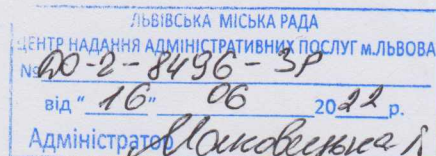 ЛЬВІВСЬКА МІСЬКА РАДА
ЦЕНТР НАДАННЯ АДМІНІСТРАТИВНИХ ПОСЛУГ м.ЛЬВОВА
№ ДО-2-8496-ЗР
від "16" 06 2022 р.
Адміністратор